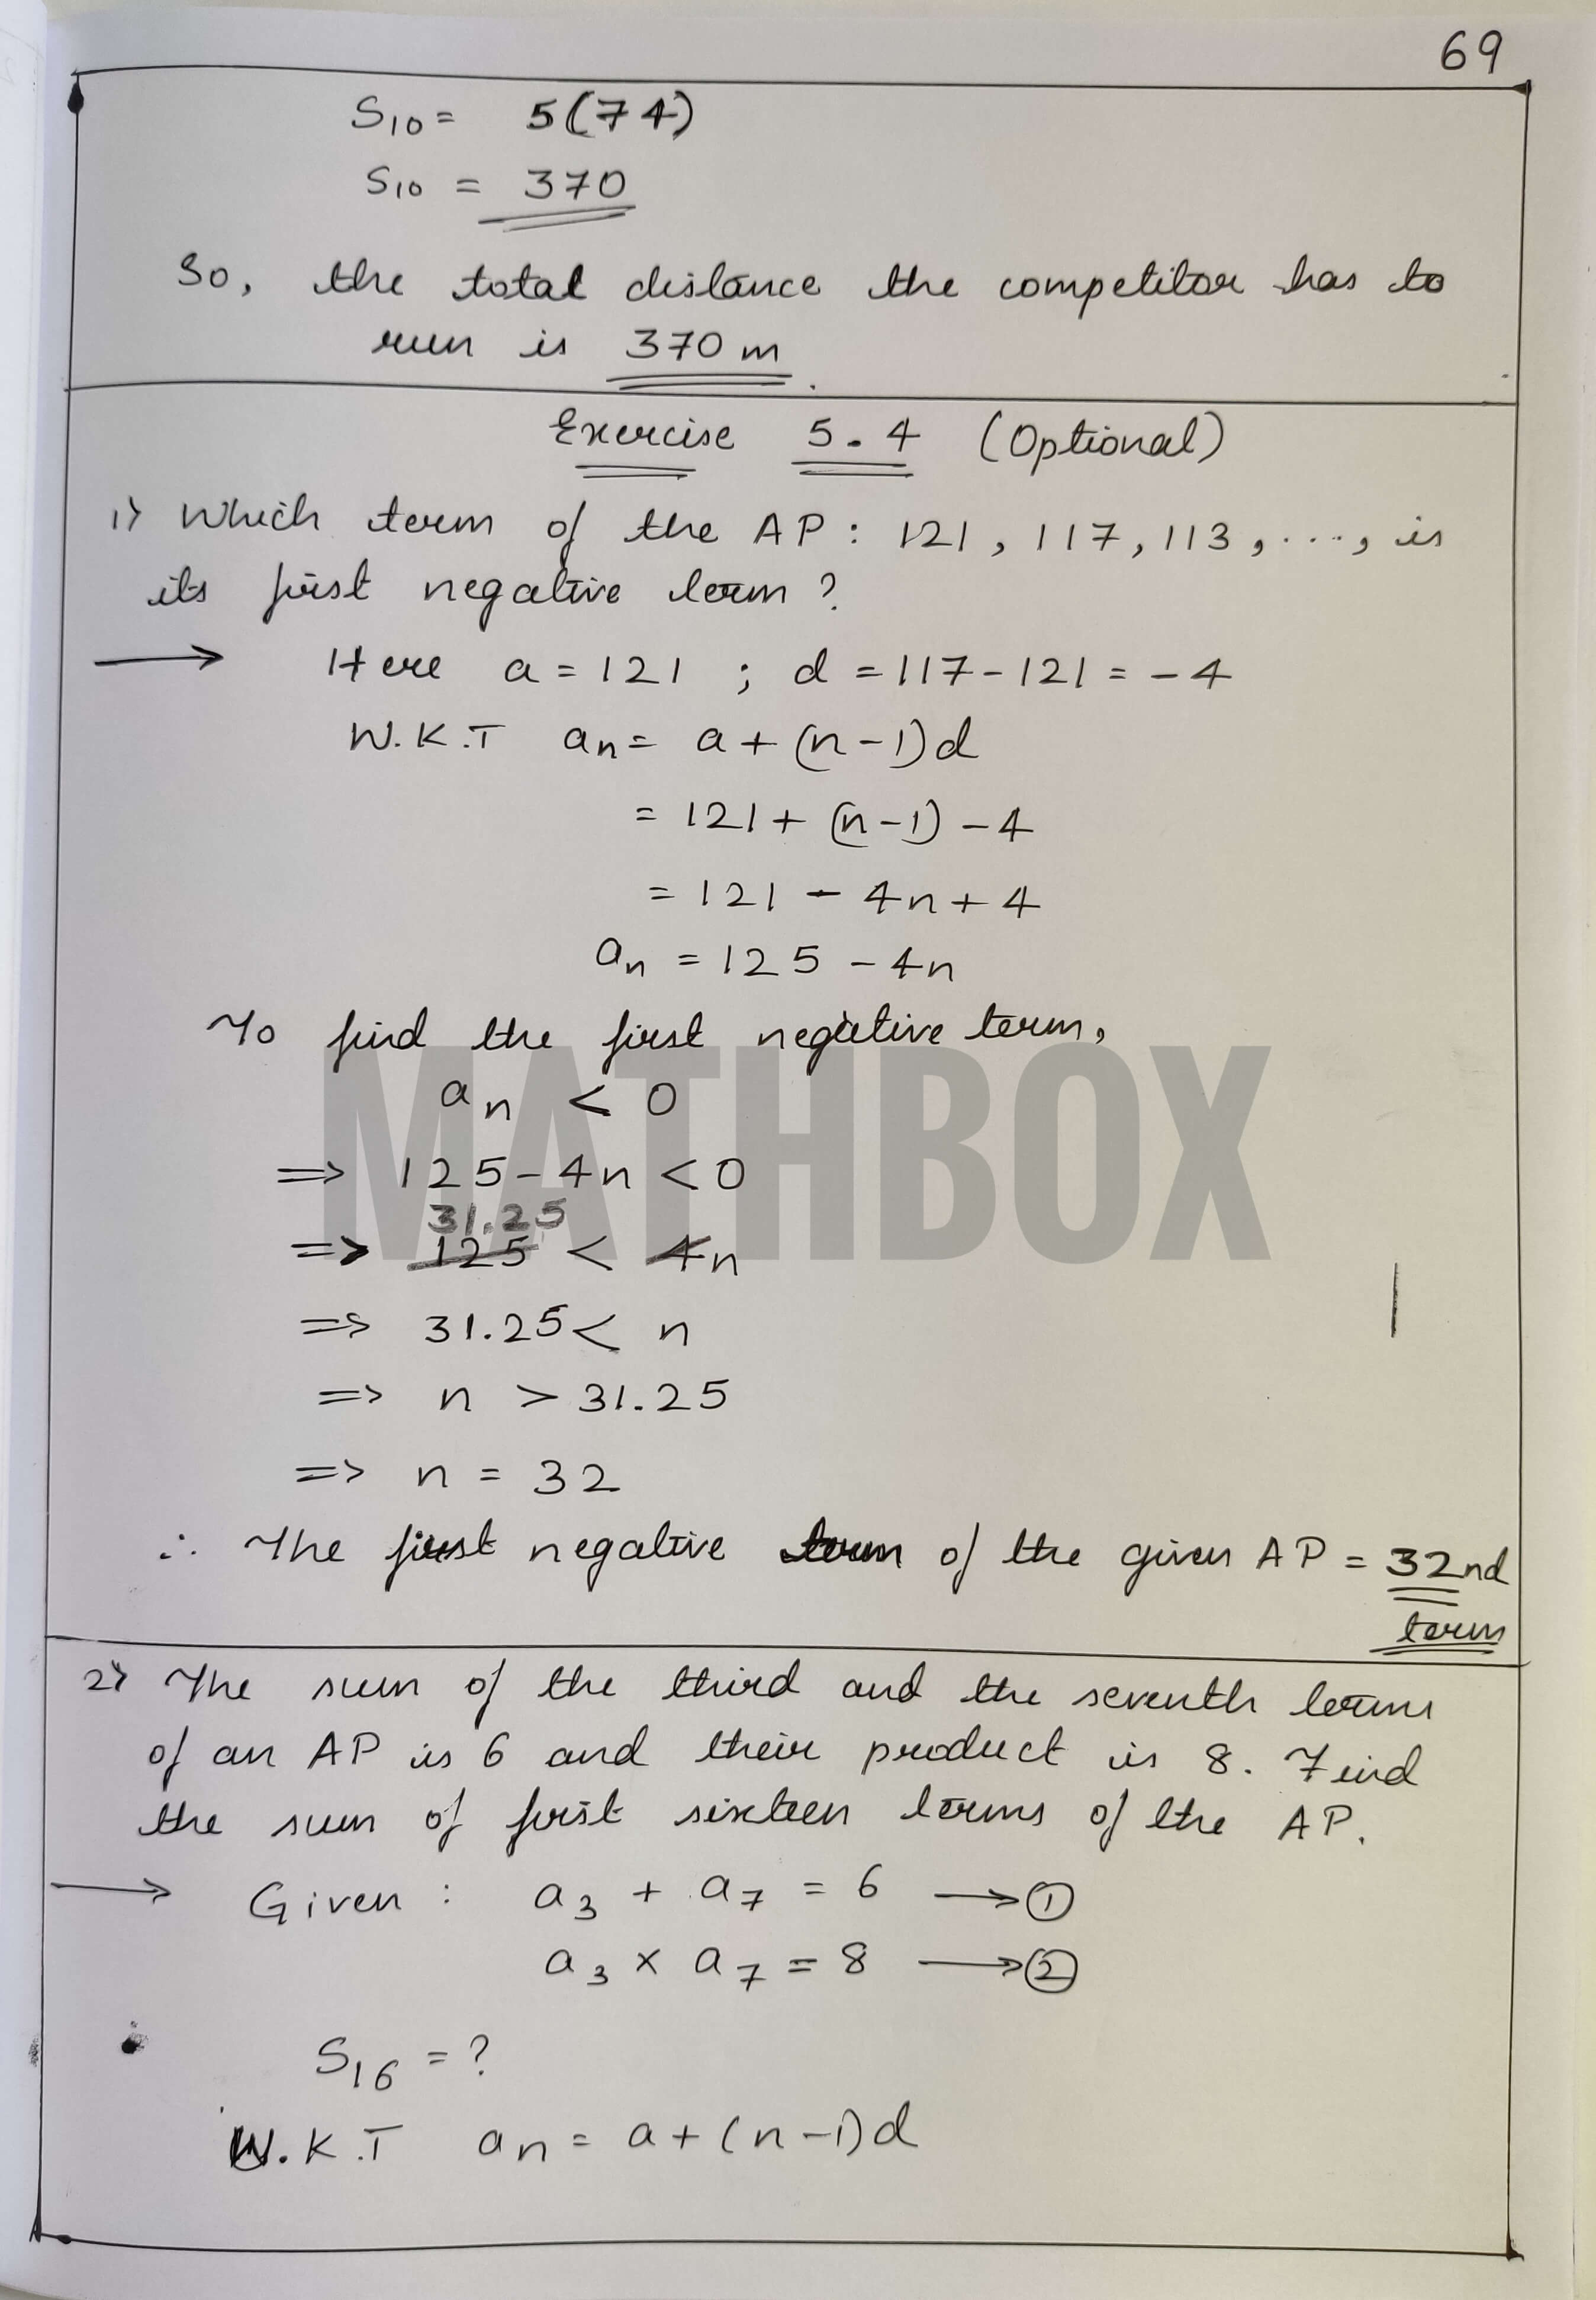 69
S10 = 5(74)
S10 = 370
So, the total distance the competitor has to
run is 370 m.
Exercise 5.4 (Optional)
1> Which term of the AP : 121, 117, 113, ..., is
its first negative term?
→ Here a = 121 ; d = 117 - 121 = -4
W.K.T an = a + (n-1)d
= 121 + (n-1) -4
= 121 - 4n + 4
an = 125 - 4n
To find the first negative term,
an < 0
=> 125 - 4n < 0
31.25
=> 125 < 4n
=> 31.25 < n
=> n > 31.25
=> n = 32
∴ The first negative term of the given AP = 32nd
term
2> The sum of the third and the seventh terms
of an AP is 6 and their product is 8. Find
the sum of first sixteen terms of the AP.
→ Given : a3 + a7 = 6 → ①
a3 × a7 = 8 → ②
S16 = ?
W.K.T an = a + (n-1)d
MATHBOX